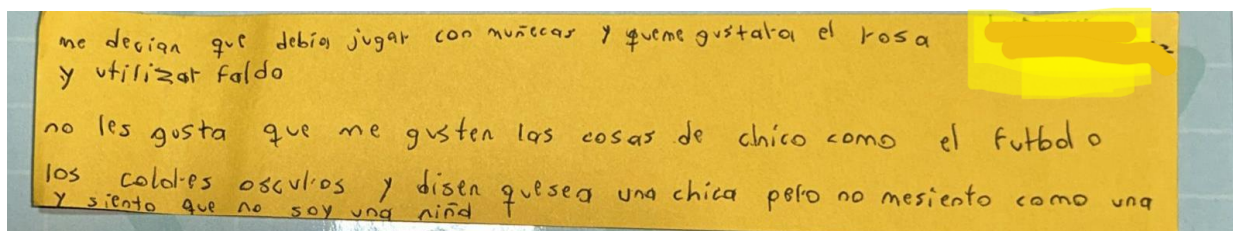 me decian que debia jugar con muñecas y queme gustara el rosa
y utilizar falda
no les gusta que me gusten las cosas de chico como el futbol o
los colores oscuros y disen quesea una chica pero no mesiento como una
y siento que no soy una niña